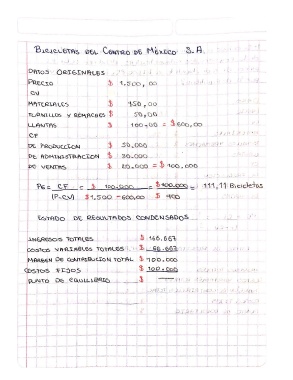 BICICLETAS DEL CENTRO DE MÉXICO S.A.
DATOS ORIGINALES
PRECIO $ 1,500,00
CV
MATERIALES $ 450,00
TORNILLOS Y REMACHES $ 50,00
LLANTAS $ 100,00 = $ 600,00
CF
DE PRODUCCION $ 50.000
DE ADMINISTRACION $ 30.000
DE VENTAS $ 20.000 = $ 100,000
PE= CF = $ 100.000 = $ 100.000 = 111,11 Bicicletas
(P-CV) $1,500 -600,00 $ 900
ESTADO DE RESULTADOS CONDENSADOS
INGRESOS TOTALES $ 166.667
COSTOS VARIABLES TOTALES $ 66.667
MARGEN DE CONTRIBUCION TOTAL $ 100,000
COSTOS FIJOS $ 100.000
PUNTO DE EQUILIBRIO $